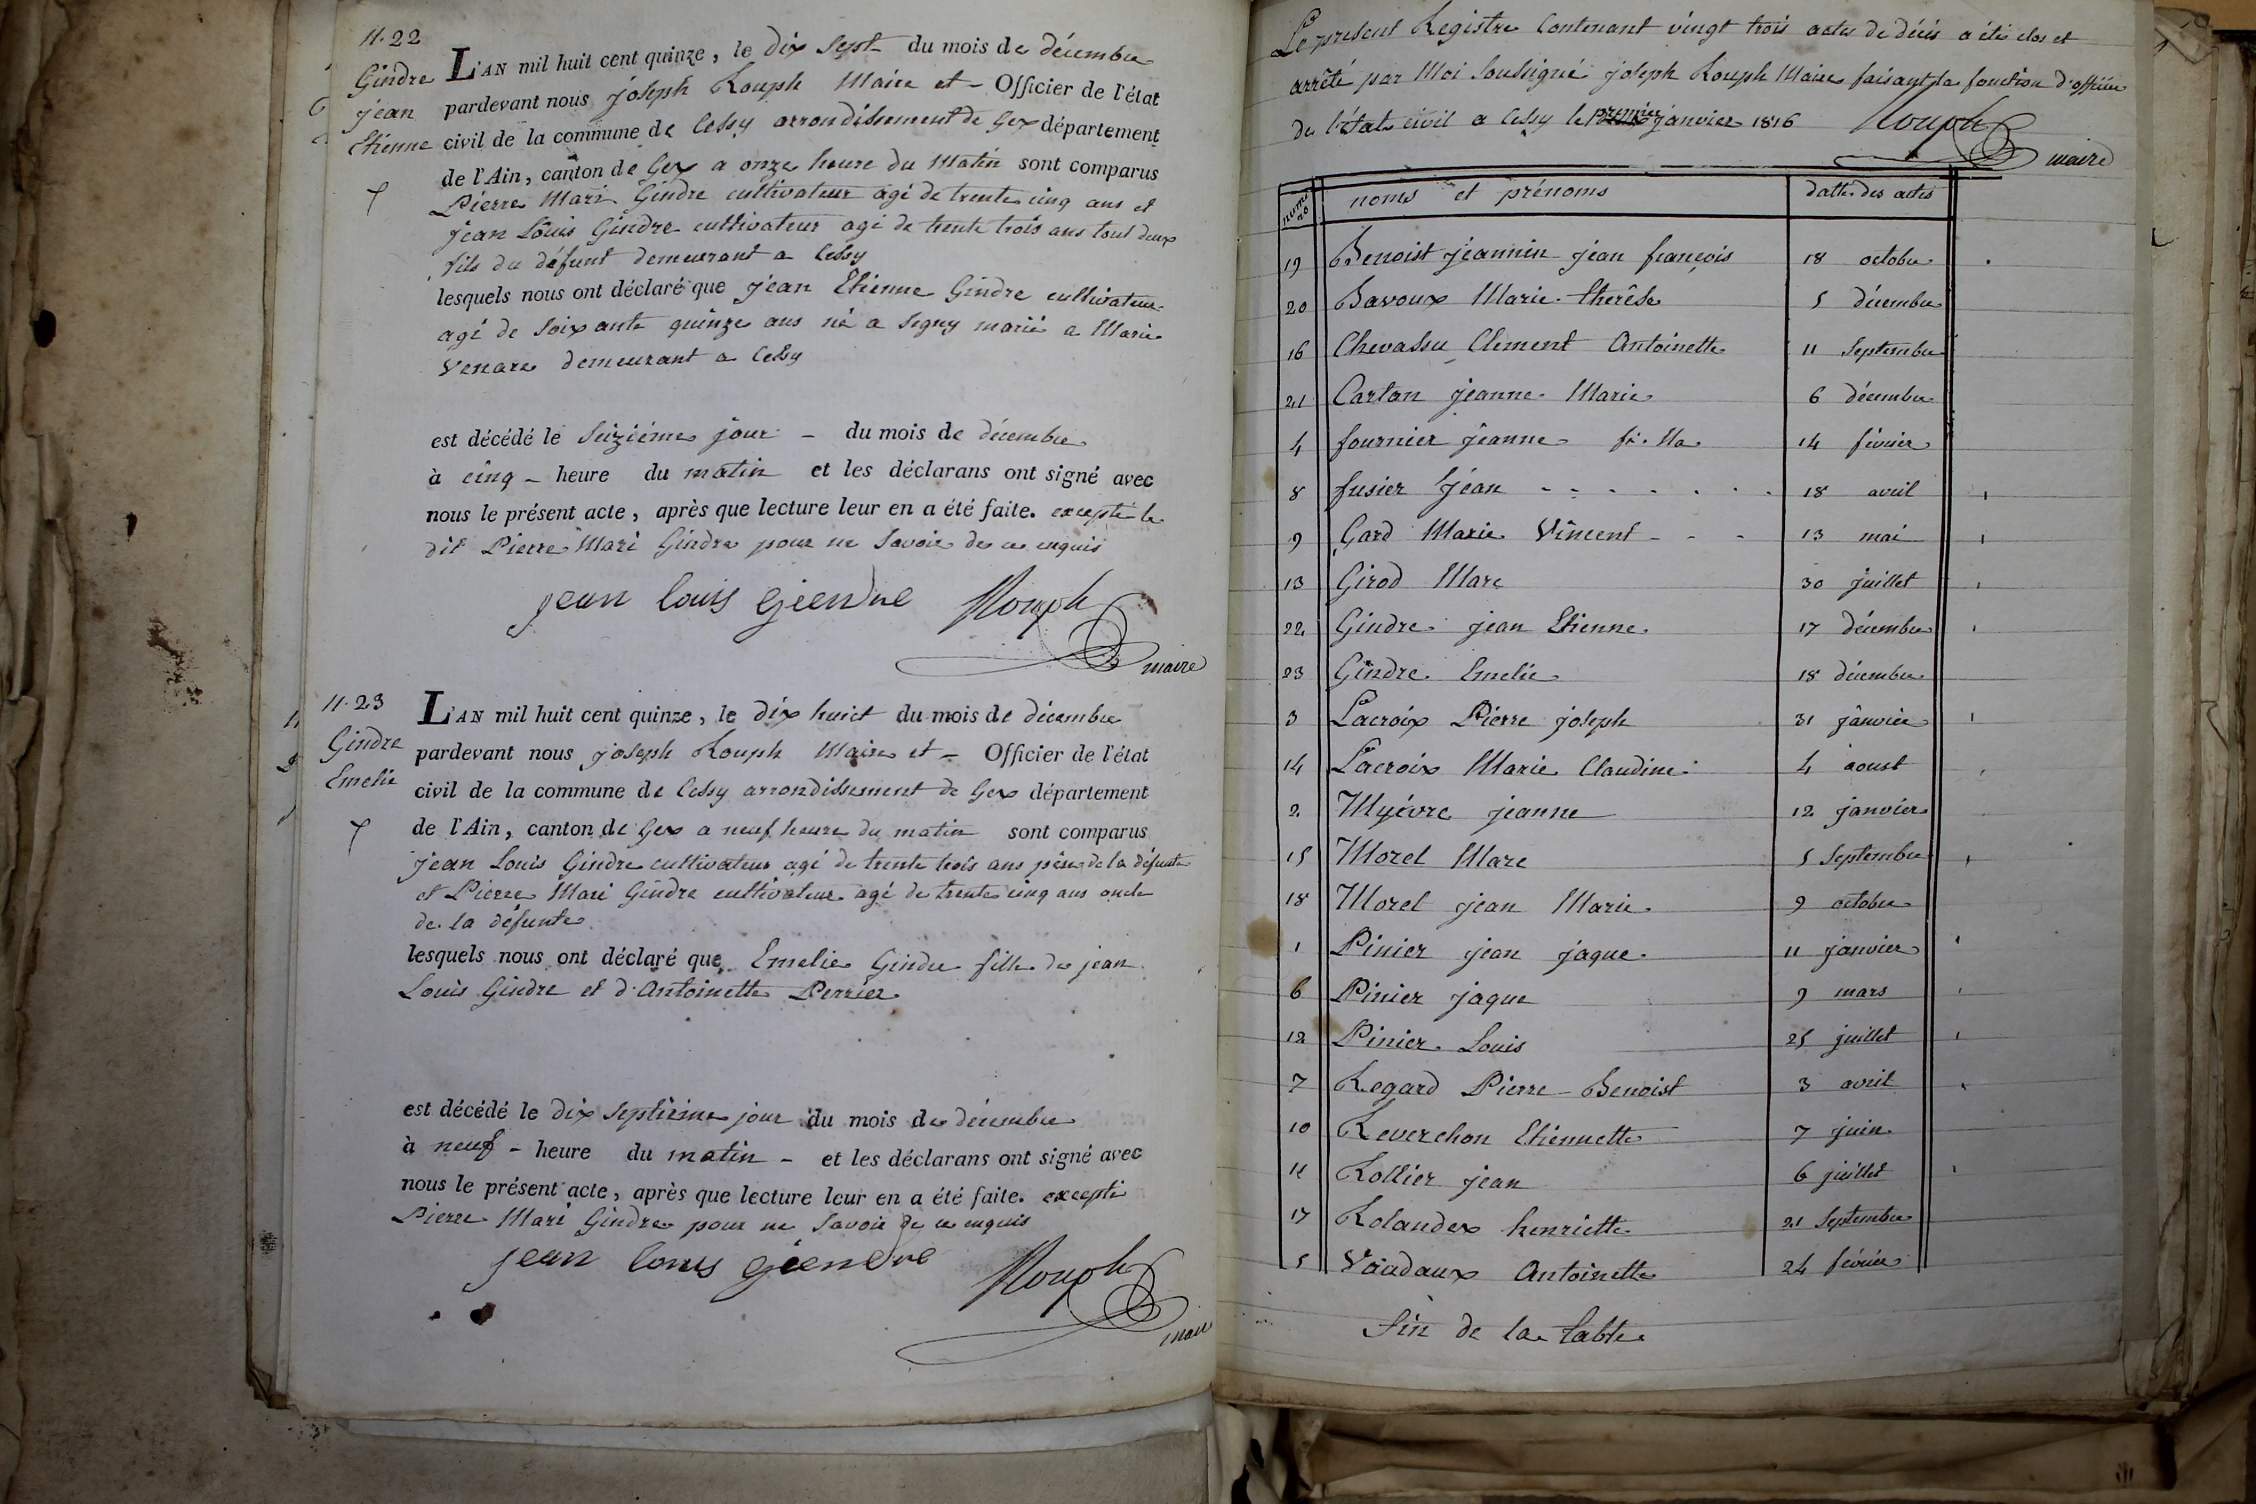 N.22
Gindre
jean
Etienne
L'AN mil huit cent quinze, le dix sept du mois de décembre
pardevant nous joseph Rouph Maire et - Officier de l'état
civil de la commune de Cessy arrondissement de Gex département
de l'Ain, canton de Gex a onze heure du Matin sont comparus
Pierre Mari Gindre cultivateur agé de trente cinq ans et
jean Louis Gindre cultivateur agé de trente trois ans tout deux
fils du défunt demeurant a Cessy
lesquels nous ont déclaré que jean Etienne Gindre cultivateur
agé de soixante quinze ans né a Segny marié a Marie
Venare demeurant a Cessy
est décédé le seiziéme jour - du mois de décembre
à cinq - heure du matin et les déclarans ont signé avec
nous le présent acte, après que lecture leur en a été faite. excepté le
dit Pierre Mari Gindre pour ne savoir de ce enquis
jean louis giendre Rouph
maire
N.23
Gindre
Emelie
L'AN mil huit cent quinze, le dix huict du mois de décembre
pardevant nous joseph Rouph Maire et - Officier de l'état
civil de la commune de Cessy arrondissement de Gex département
de l'Ain, canton de Gex a neuf heure du matin sont comparus
jean Louis Gindre cultivateur agé de trente trois ans père de la défunte
et Pierre Mari Gindre cultivateur agé de trente cinq ans oncle
de la défunte
lesquels nous ont déclaré que Emelie Gindre fille de jean
Louis Gindre et d'Antoinette Perrier
est décédé le dix septiéme jour du mois de décembre
à neuf - heure du matin - et les déclarans ont signé avec
nous le présent acte, après que lecture leur en a été faite. excepté
Pierre Mari Gindre pour ne savoir de ce enquis
jean louis giendre Rouph
maire
Le present Registre Contenant vingt trois actes de décés a étés clos et
arrêté par Moi soussigné joseph Rouph Maire faisant la fonction d'officier
de l'état civil a Cessy le premier janvier 1816 Rouph
maire
noms et prénoms datte des actes
19 Benoist jeannin jean françois 18 octobre
20 Bavoux Marie therése 5 décembre
16 Chevassu Clement Antoinette 11 Septembre
21 Cartan jeanne Marie 6 décembre
4 fournier jeanne 14 février
8 fusier jean 18 avril
9 Gard Marie Vincent 13 mai
13 Girod Marc 30 juillet
22 Gindre jean Etienne 17 décembre
23 Gindre Emelie 18 décembre
3 Lacroix Pierre joseph 31 janvier
14 Lacroix Marie Claudine 4 aoust
2 Myévre jeanne 12 janvier
15 Morel Marc 5 Septembre
18 Morel jean Marie 9 octobre
1 Pinier jean jaque 11 janvier
6 Pinier jaque 9 mars
12 Pinier Louis 25 juillet
7 Regard Pierre Benoist 3 avril
10 Reverchon Etiennette 7 juin
11 Rollier jean 6 juillet
17 Rolandex henriette 21 Septembre
5 Vaudaux Antoinette 24 février
fin de la table